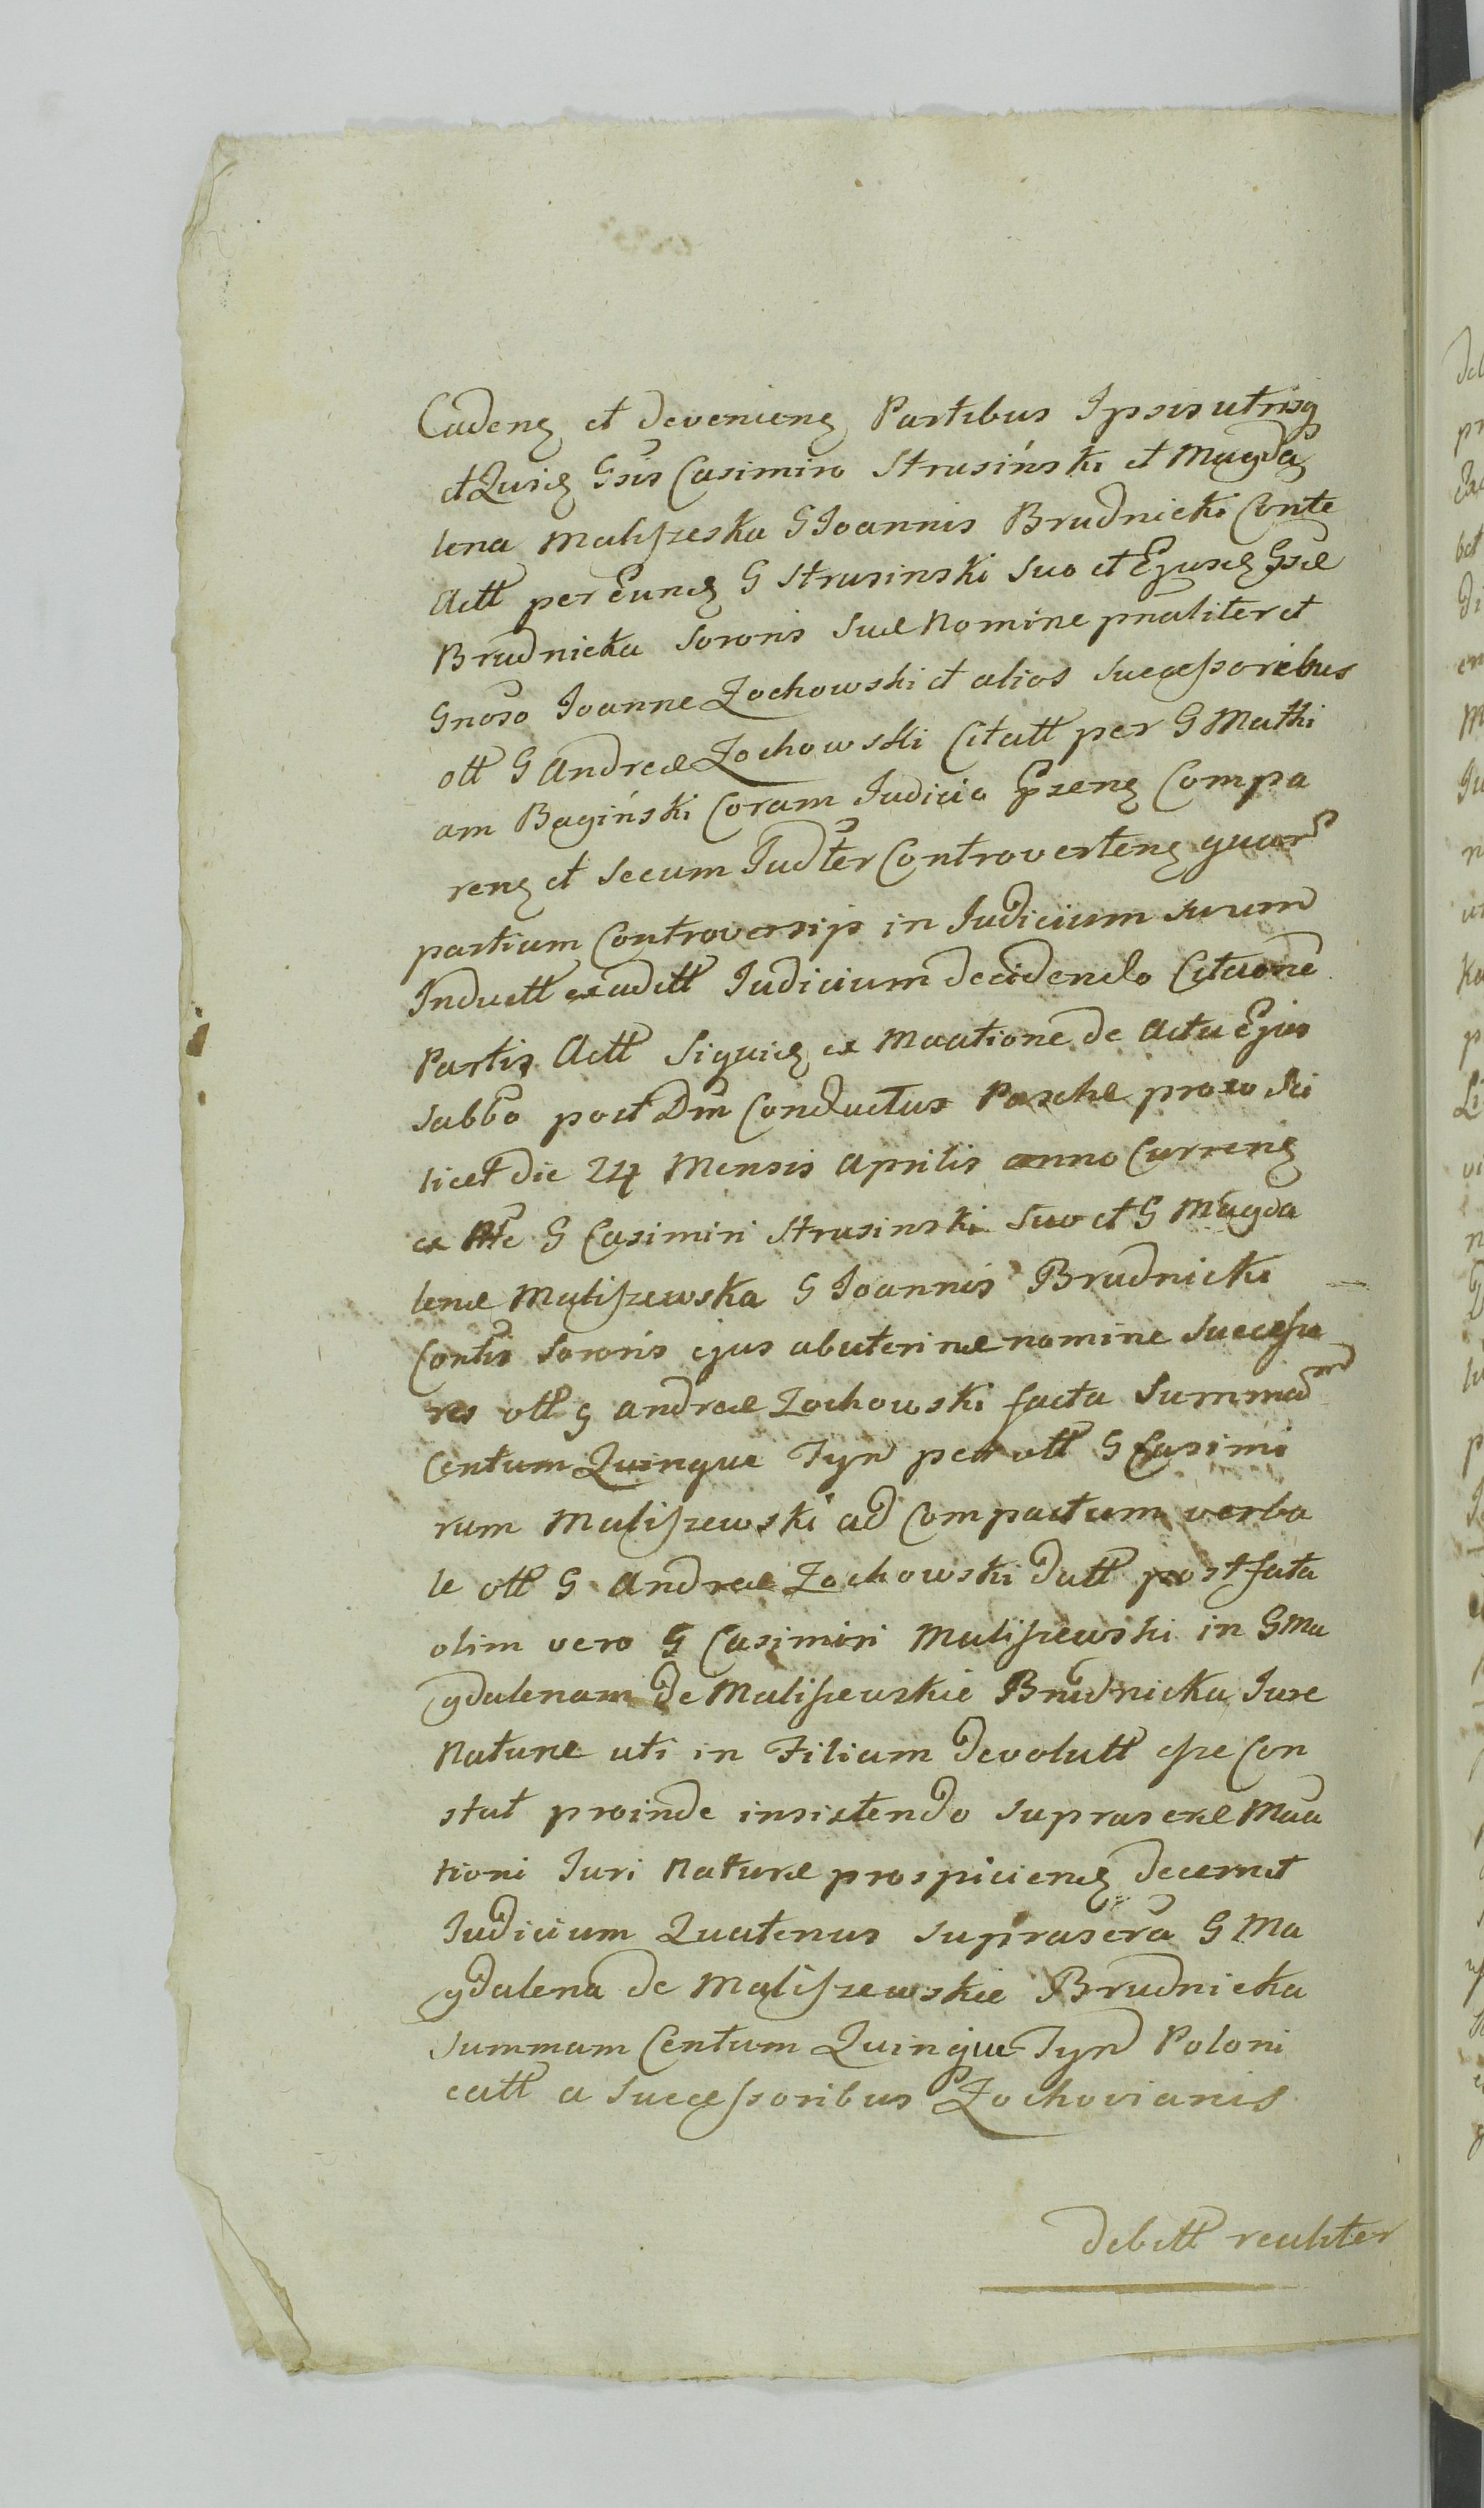 Cadenꝫ et devenienꝫ Partibus Ipsis utrisq
et Quidꝫ Gsis Casimiro Strusiński et Magda
lena Maliszeska G Joannis Brudnicki Conte
Actt per Eundꝫ G Strusinski suo et Ejusdꝫ Gsæ
Brudnicka sororis suæ Nomine pnaliter et
Gnoso Joanne Zochowski et alios successoribus
ott G Andreæ Zochowski Citatt per G Mathi
am Bagiński Coram Judicio Pzenꝫ Compa
renꝫ et secum Judter Controvertenꝫ quar
partium Controversijs in Judicium suum
Inductt exaditt Judicium decidendo Citaone
Partis Actt Siquidꝫ ex Maatione de Actu Ejus
sabbo post Dm Conductus Paschæ proxo sci
licet die 24 Mensis Aprilis anno Currenꝫ
ex Pte G Casimiri Strusinski suo et G Magda
lenæ Maliszewska G Joannis Brudnicki
Contis sororis ejus abuterinæ nomine successo
res ott G Andreæ Zochowski facta summam
Centum Quinque Tyn per ott G Casimi
rum Maliszewski ad Compactum verba
le ott G Andreæ Zochowski datt post fata
olim vero G Casimiri Maliszewski in G Ma
gdalenam de Maliszewskie Brudnicka Jure
Naturæ uti in Filiam devolutt esse Con
stat proinde insistendo suprascræ Maa
tioni Juri Naturæ prospicienꝫ decernit
Judicium Quatenus suprascra G Ma
gdalena de Maliszewskie Brudnicka
summam Centum Quinque Tyn Poloni
catt a Successoribus Zochovianis
debitt realiter